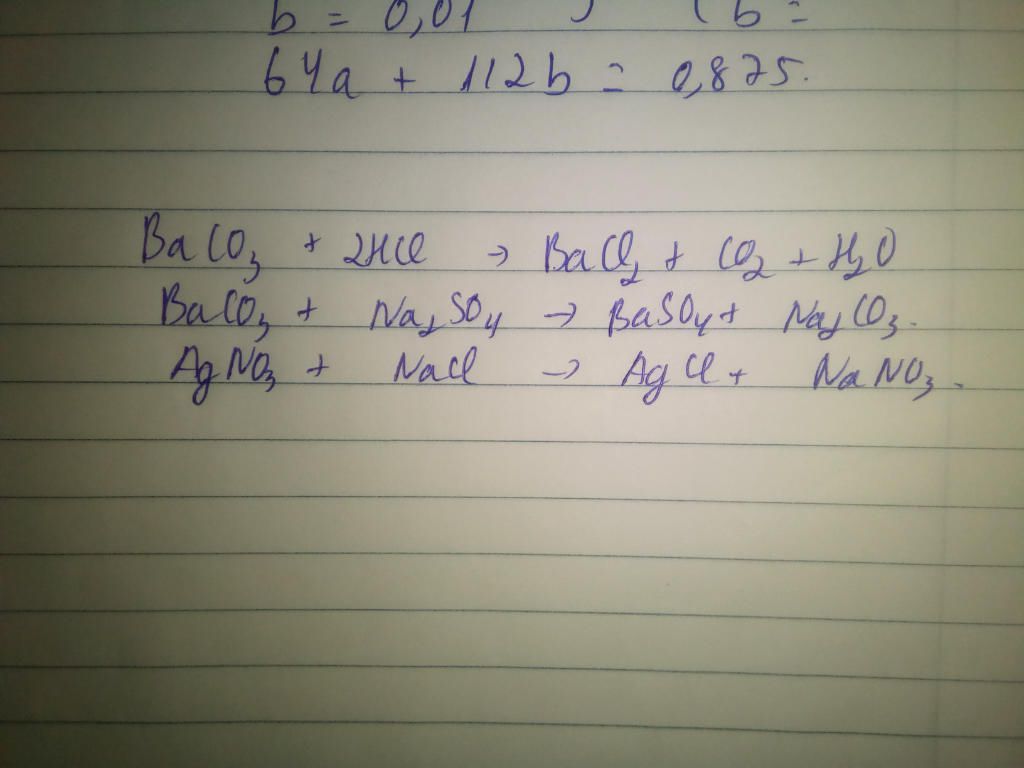 b = 0,01 ) ( b =
64a + 112b = 0,875.
BaCO₃ + 2HCl → BaCl₂ + CO₂ + H₂O
BaCO₃ + Na₂SO₄ → BaSO₄ + Na₂CO₃.
AgNO₃ + NaCl → AgCl + NaNO₃.